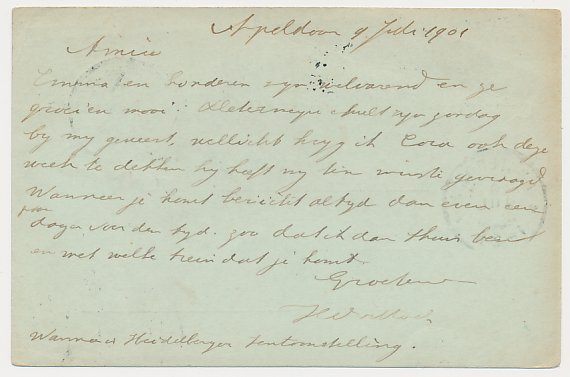 Apeldoorn 9 Juli 1901
Amice
Emma en honderen zyn welvarend en ze
groeien mooi. zyn zondag
by my geweest, wellicht kryg ik Cora ook deze
week te dekken hy heeft my ten minste gevraagd
Wanneer je komt bericht altyd dan even een
paar
dagen van den tyd. zoo dat ik dan thuis ben
en met welke trein dat je komt.
Groetend
H
Wanneer is Heidelberger tentoonstelling.